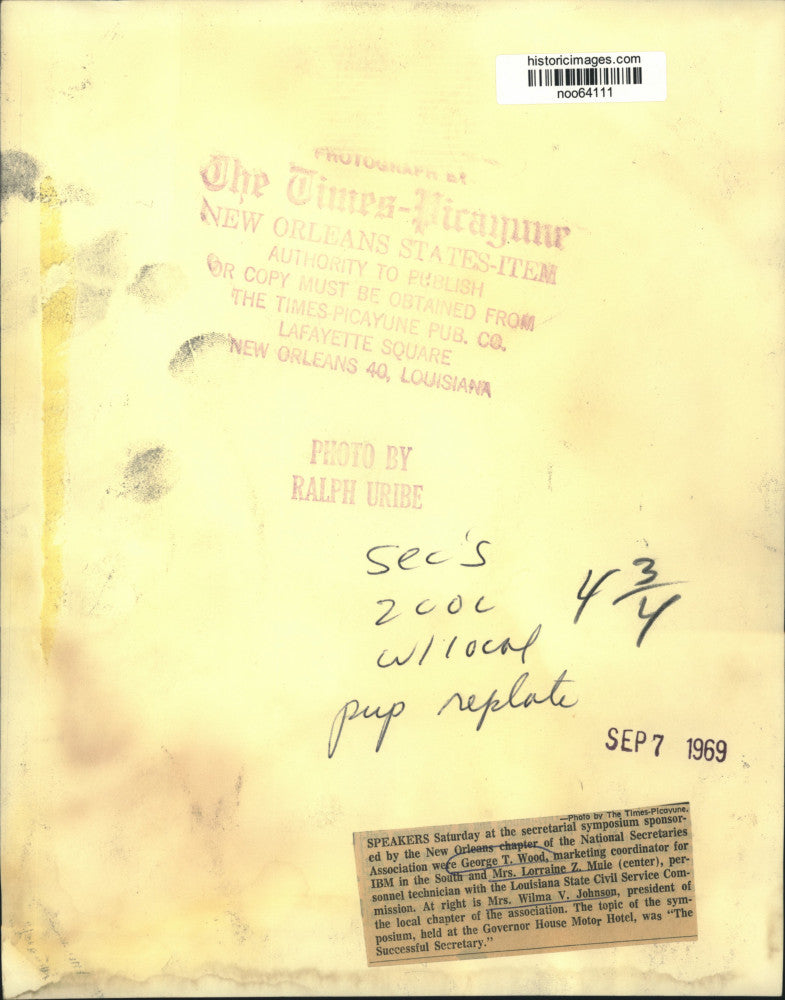 historicimages.com
noo64111
PHOTOGRAPH BY
The Times-Picayune
NEW ORLEANS STATES-ITEM
AUTHORITY TO PUBLISH
OR COPY MUST BE OBTAINED FROM
THE TIMES-PICAYUNE PUB. CO.
LAFAYETTE SQUARE
NEW ORLEANS 40, LOUISIANA
PHOTO BY
RALPH URIBE
Sec's
2 col
4 3/4
w/local
pup replate
SEP 7 1969
—Photo by The Times-Picayune.
SPEAKERS Saturday at the secretarial symposium sponsor-
ed by the New Orleans chapter of the National Secretaries
Association were George T. Wood, marketing coordinator for
IBM in the South and Mrs. Lorraine Z. Mule (center), per-
sonnel technician with the Louisiana State Civil Service Com-
mission. At right is Mrs. Wilma V. Johnson, president of
the local chapter of the association. The topic of the sym-
posium, held at the Governor House Motor Hotel, was "The
Successful Secretary."